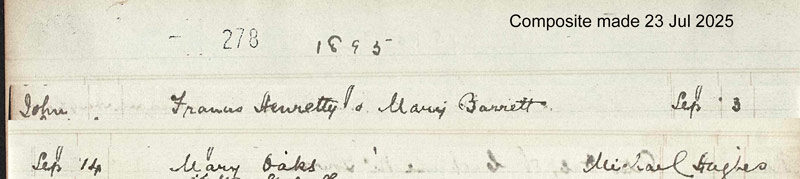 Composite made 23 Jul 2025
278 1895
John Francis Henretty & Mary Barrett Sep 3
Sep 14 Mary Oaks Michael Hughes